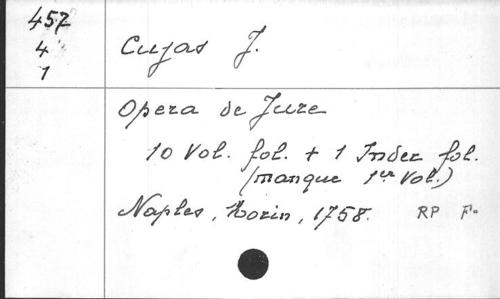 457
4
1
Cujas J.
Opera de Jure
10 Vol. fol. + 1 Index fol.
(manque 1er Vol.)
Naples, Morin, 1758. RP F.